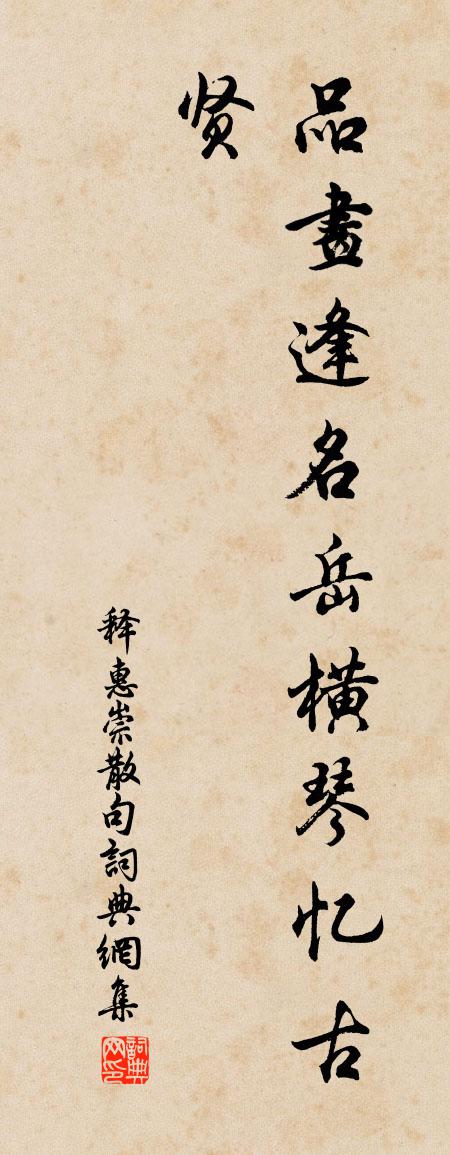 品畫逢名岳横琴忆古
贤
释惠崇散句詞典網集
詞典网印